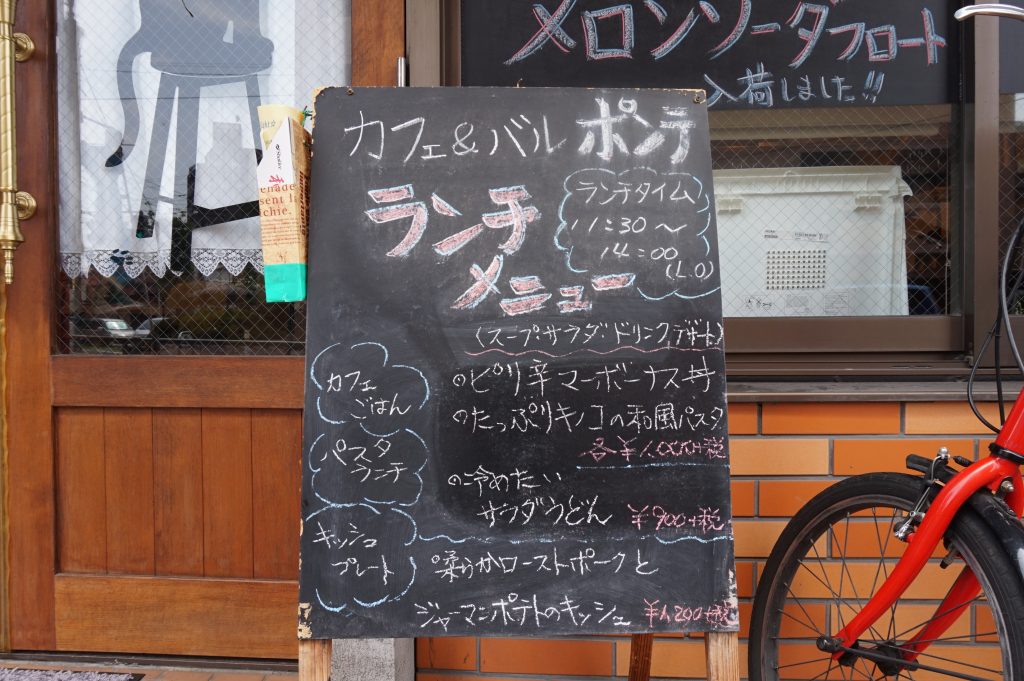 メロンソーダフロート
入荷しました!!
カフェ&バル ポンテ
ランチ
メニュー
ランチタイム
11:30〜
14:00
(L.O)
(スープ・サラダ・ドリンク,デザート)
カフェ
ごはん
•ピリ辛マーボーナス丼
•たっぷりキノコの和風パスタ
各¥1,000+税
パスタ
ランチ
•冷めたい
サラダうどん ¥900+税
キッシュ
プレート
•柔らかローストポークと
ジャーマンポテトのキッシュ ¥1,200+税